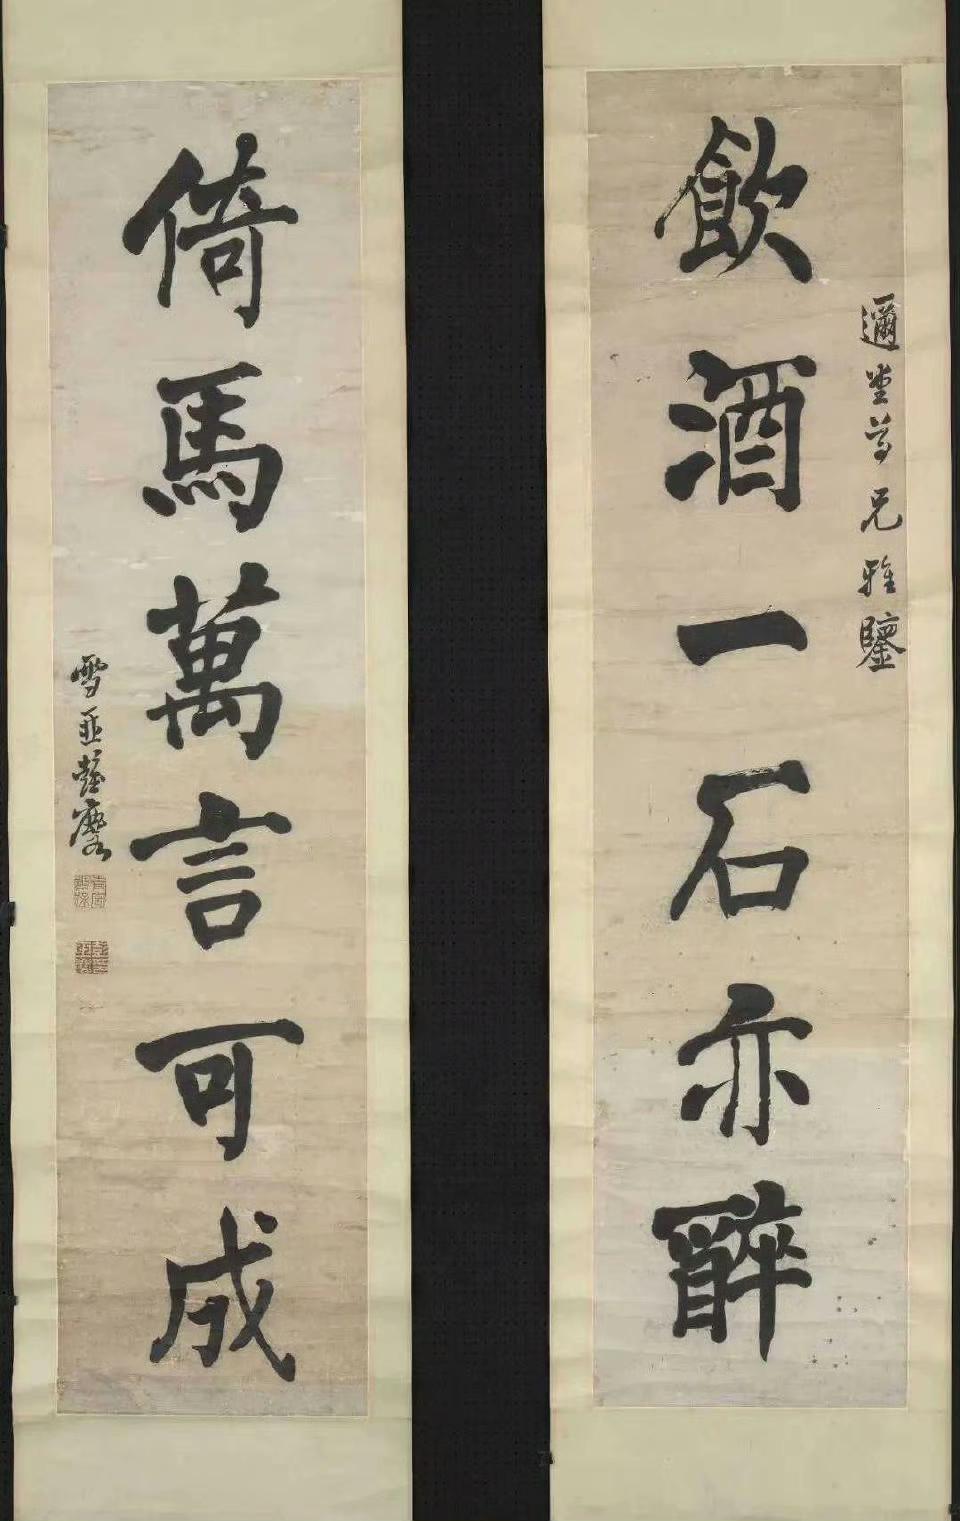 邇尊兄雅鑒
飲酒一石亦醉
倚馬萬言可成
雪